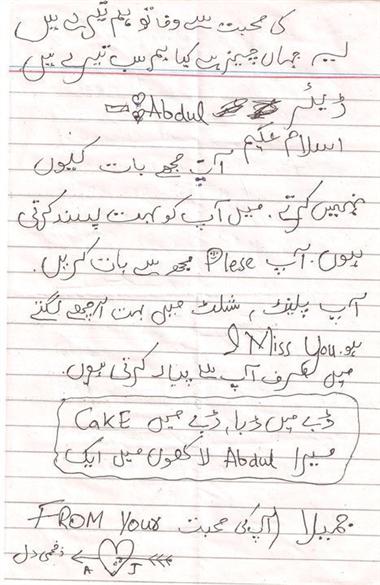 کی محبت سے وفا تو ہم تیرے ہیں
یہ جہاں چیز ہے کیا ہم سب تیرے ہیں
ڈیئر Abdul
اسلام علیکم
آپ مجھے بات کیوں
نہیں کرتے. میں آپ کو بہت پسند کرتی
ہوں. آپ Plese مجھ سے بات کریں.
آپ پلینٹ, شلٹ میں بہت اچھے لگتے
ہو. I Miss You
میں صرف آپ سے پیار کرتی ہوں.
ڈبے میں ڈبا, ڈبے میں CaKE
میرا Abdul لاکھوں میں ایک
FROM Your جمیلا (آپ کی محبت
زخمی دل A J